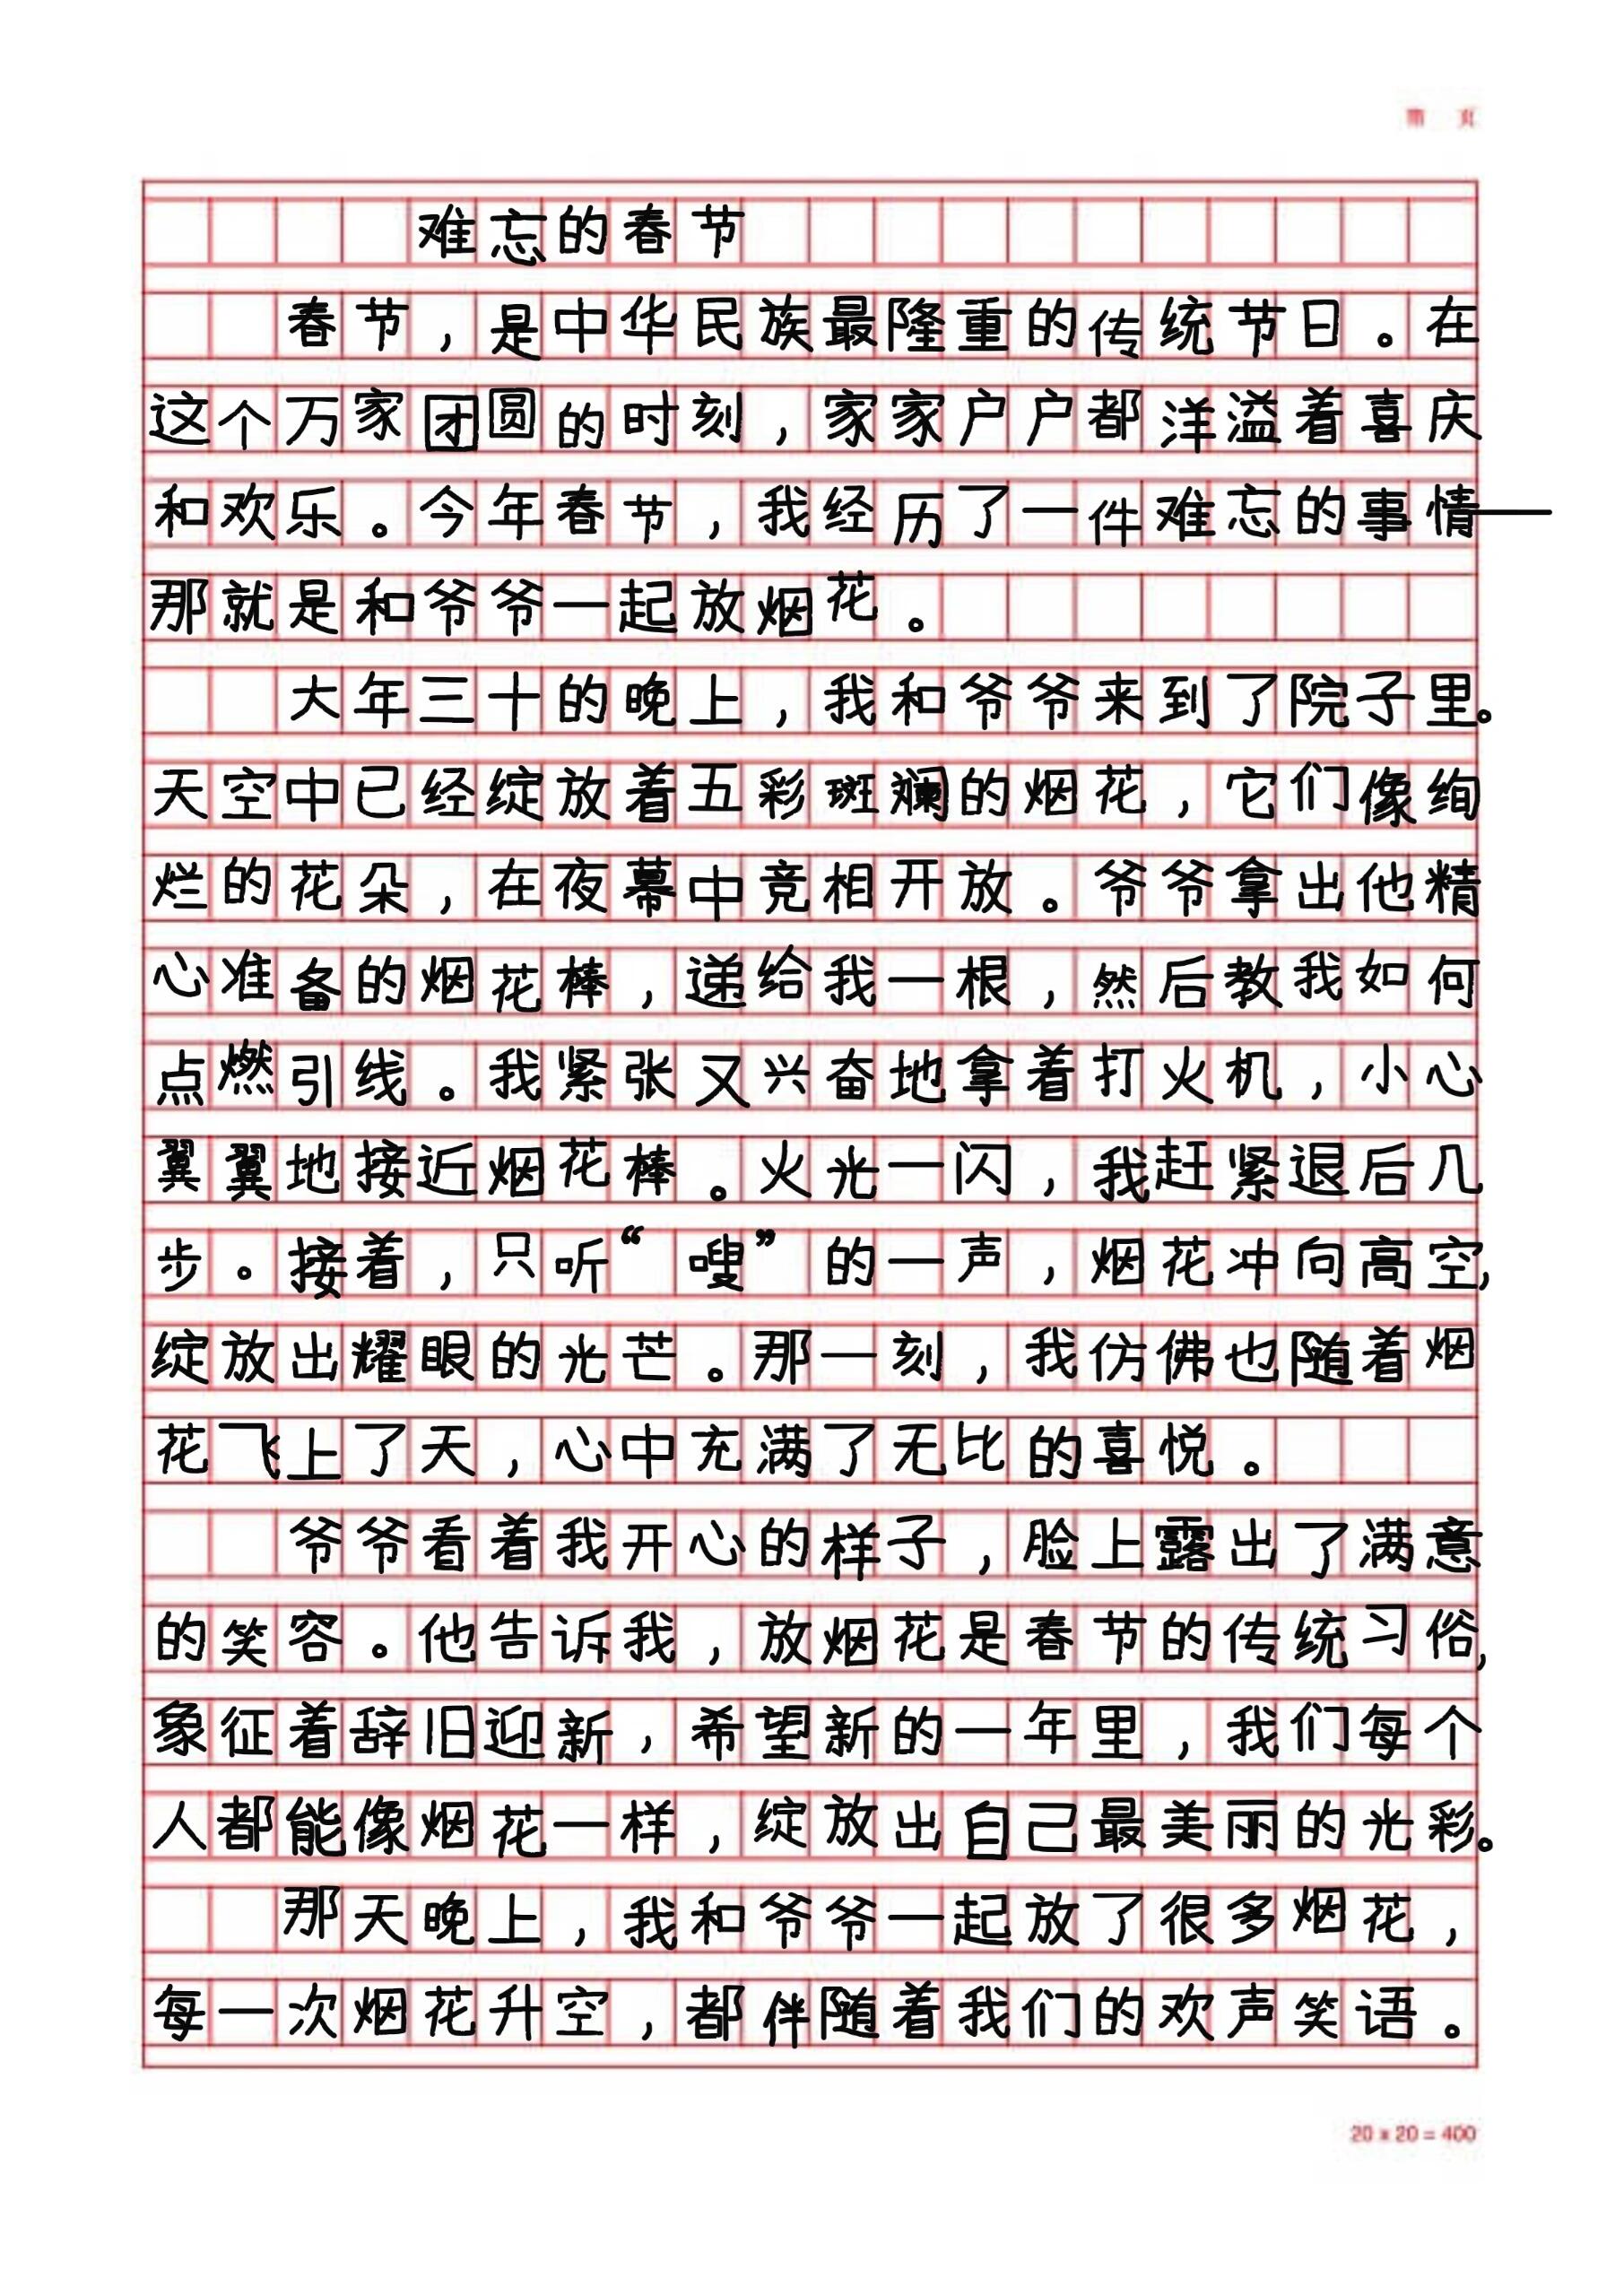 第 页
难忘的春节
春节，是中华民族最隆重的传统节日。在
这个万家团圆的时刻，家家户户都洋溢着喜庆
和欢乐。今年春节，我经历了一件难忘的事情——
那就是和爷爷一起放烟花。
大年三十的晚上，我和爷爷来到了院子里。
天空中已经绽放着五彩斑斓的烟花，它们像绚
烂的花朵，在夜幕中竞相开放。爷爷拿出他精
心准备的烟花棒，递给我一根，然后教我如何
点燃引线。我紧张又兴奋地拿着打火机，小心
翼翼地接近烟花棒。火光一闪，我赶紧退后几
步。接着，只听“嗖”的一声，烟花冲向高空，
绽放出耀眼的光芒。那一刻，我仿佛也随着烟
花飞上了天，心中充满了无比的喜悦。
爷爷看着我开心的样子，脸上露出了满意
的笑容。他告诉我，放烟花是春节的传统习俗，
象征着辞旧迎新，希望新的一年里，我们每个
人都能像烟花一样，绽放出自己最美丽的光彩。
那天晚上，我和爷爷一起放了很多烟花，
每一次烟花升空，都伴随着我们的欢声笑语。
20 x 20 = 400